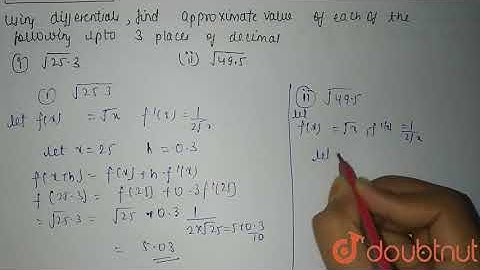 using differentials, find approximate value of each of the
following upto 3 places of decimal
(i) √25.3 (ii) √49.5
(i) √25.3
let f(x) = √x f'(x) = 1/2√x
let x = 25 h = 0.3
f(x+h) = f(x) + h·f'(x)
f(25.3) = f(25) + 0.3 f'(25)
= √25.3 = √25 + 0.3 1/2×√25 = 5+0.3/10
= 5.03
(ii) √49.5
let
f(x) = √x, f'(x) = 1/2√x
let
doubtnut